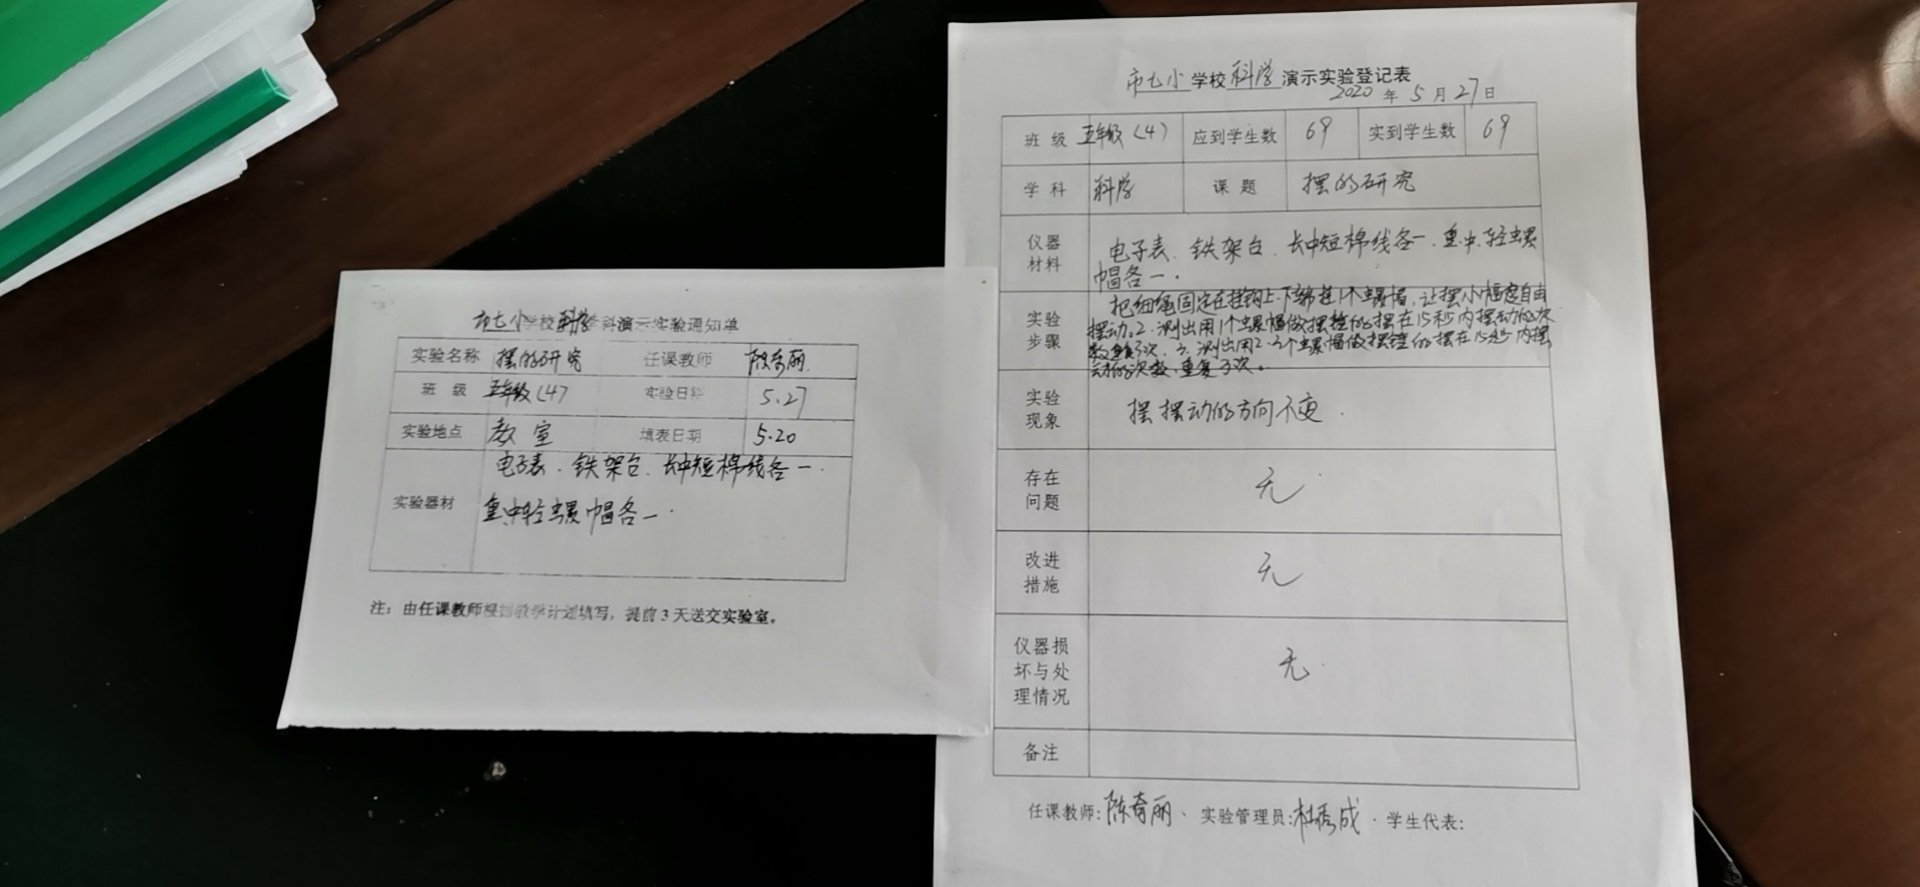 市七小学校科学学科演示实验通知单
实验名称 摆的研究 任课教师
班 级 五年级(4) 实验日期 5.27
实验地点 教室 填表日期 5.20
电子表、铁架台、长中短棉线各一、
实验器材 重、中轻螺帽各一.
注：由任课教师根据教学计划填写，提前3天送交实验室。
市七小学校科学演示实验登记表
2020年5月27日
班 级 五年级(4) 应到学生数 69 实到学生数 69
学 科 科学 课 题 摆的研究
仪器材料 电子表、铁架台、长中短棉线各一、重、中、轻螺
帽各一.
实验步骤 把细绳固定在挂钩上.下端挂1个螺帽，让摆小幅度自由
摆动。2.测出用1个螺帽做摆锤的摆在15秒内摆动的次
数重复3次、3.测出用2.3个螺帽做摆锤的摆在15秒内摆
动的次数，重复3次。
实验现象 摆摆动的方向不变.
存在问题 无.
改进措施 无
仪器损坏与处理情况 无.
备注
任课教师: 实验管理员: 学生代表: